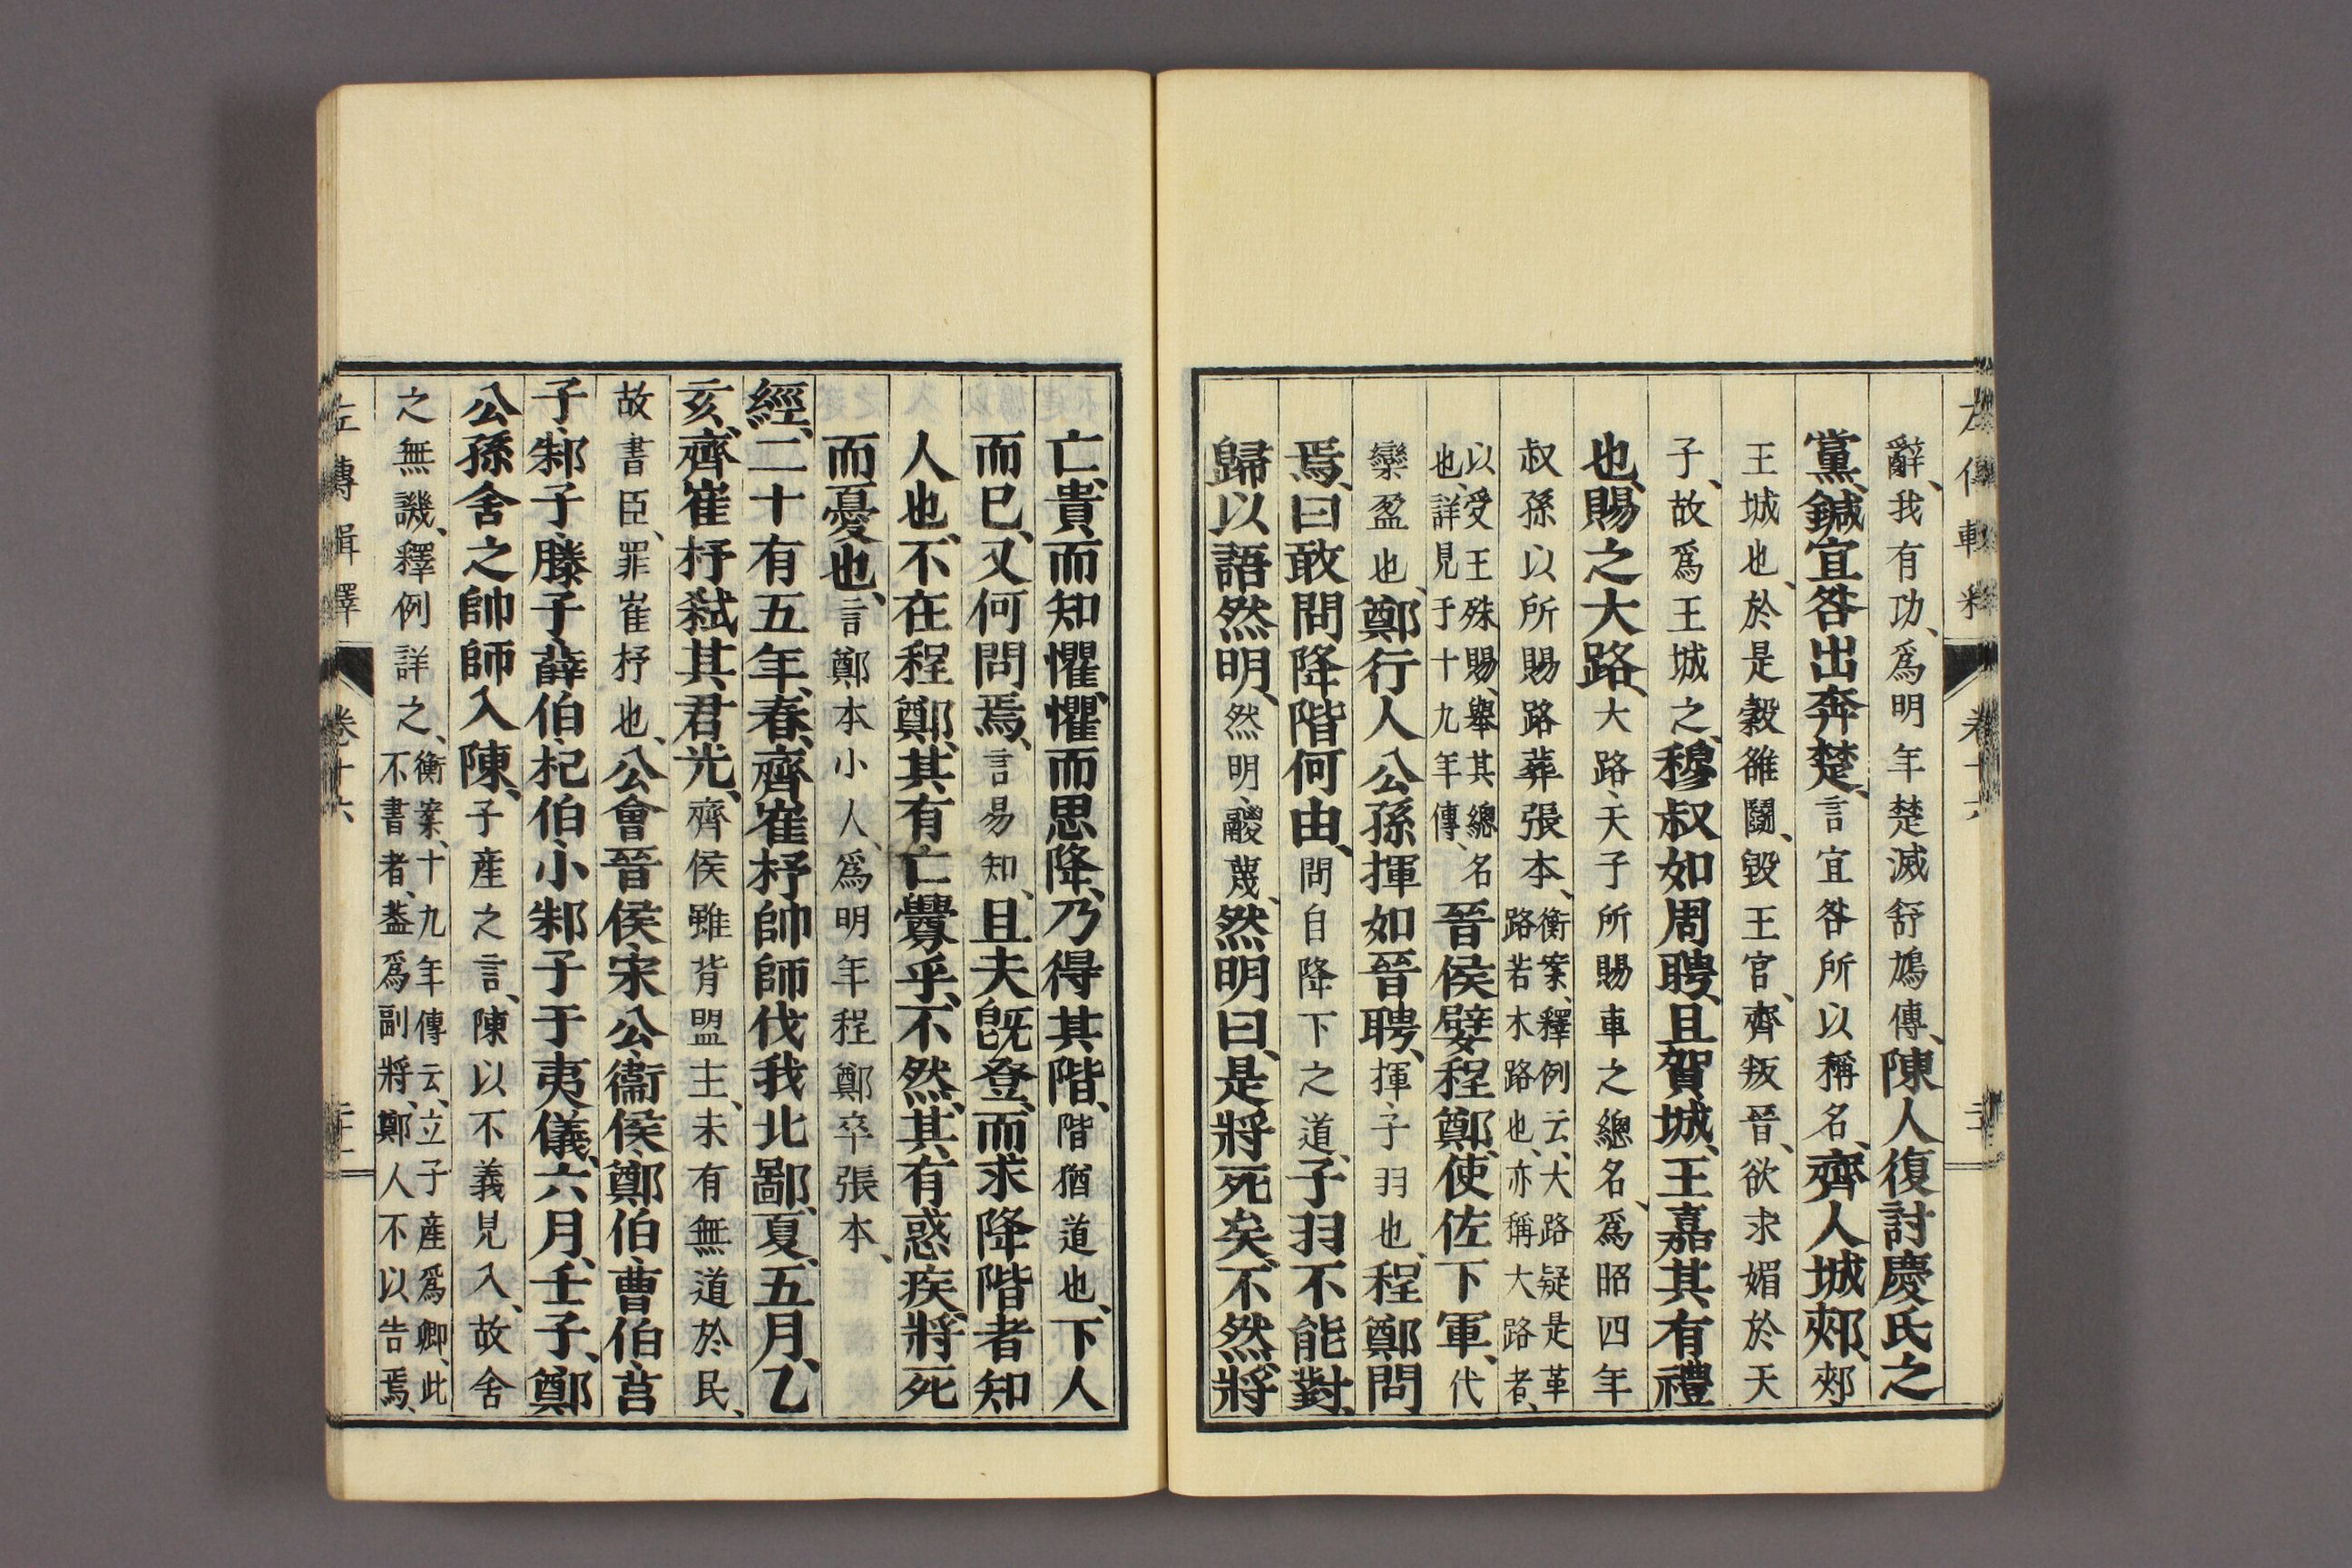 辭、我有功、爲明年楚滅舒鳩傳、陳人復討慶氏之
黨、鍼宜咎出奔楚、言宜咎所以稱名、齊人城郟、郟
王城也、於是穀雒鬪、毀王宮、齊叛晉、欲求媚於天
子、故爲王城之、穆叔如周聘、且賀城、王嘉其有禮
也、賜之大路、大路、天子所賜車之總名、爲昭四年
叔孫以所賜路葬張本、衡案、釋例云、大路疑是革
路若木路也、亦稱大路者、
以受王殊賜、舉其總名
也、詳見于十九年傳、晉侯嬖程鄭、使佐下軍、代
欒盈也、鄭行人公孫揮如晉聘、揮、子羽也、程鄭問
焉、曰敢問降階何由、問自降下之道、子羽不能對、
歸以語然明、然明、鬷蔑、然明曰、是將死矣、不然、將
亡、貴而知懼、懼而思降、乃得其階、階猶道也、下人
而已、又何問焉、言易知、且夫旣登、而求降階者知
人也、不在程鄭、其有亡釁乎、不然、其有惑疾、將死
而憂也、言鄭本小人、爲明年程鄭卒張本、
經、二十有五年、春、齊崔杼帥師伐我北鄙、夏、五月、乙
亥、齊崔杼弑其君光、齊侯雖背盟主、未有無道於民、
故書臣、罪崔杼也、公會晉侯宋公衞侯鄭伯曹伯莒
子邾子滕子薛伯杞伯小邾子于夷儀、六月、壬子、鄭
公孫舍之帥師入陳、子產之言、陳以不義見入、故舍
之無譏、釋例詳之、衡案、十九年傳云、立子產爲卿、此
不書者、蓋爲副將、鄭人不以告焉、
左傳輯釋 卷十六